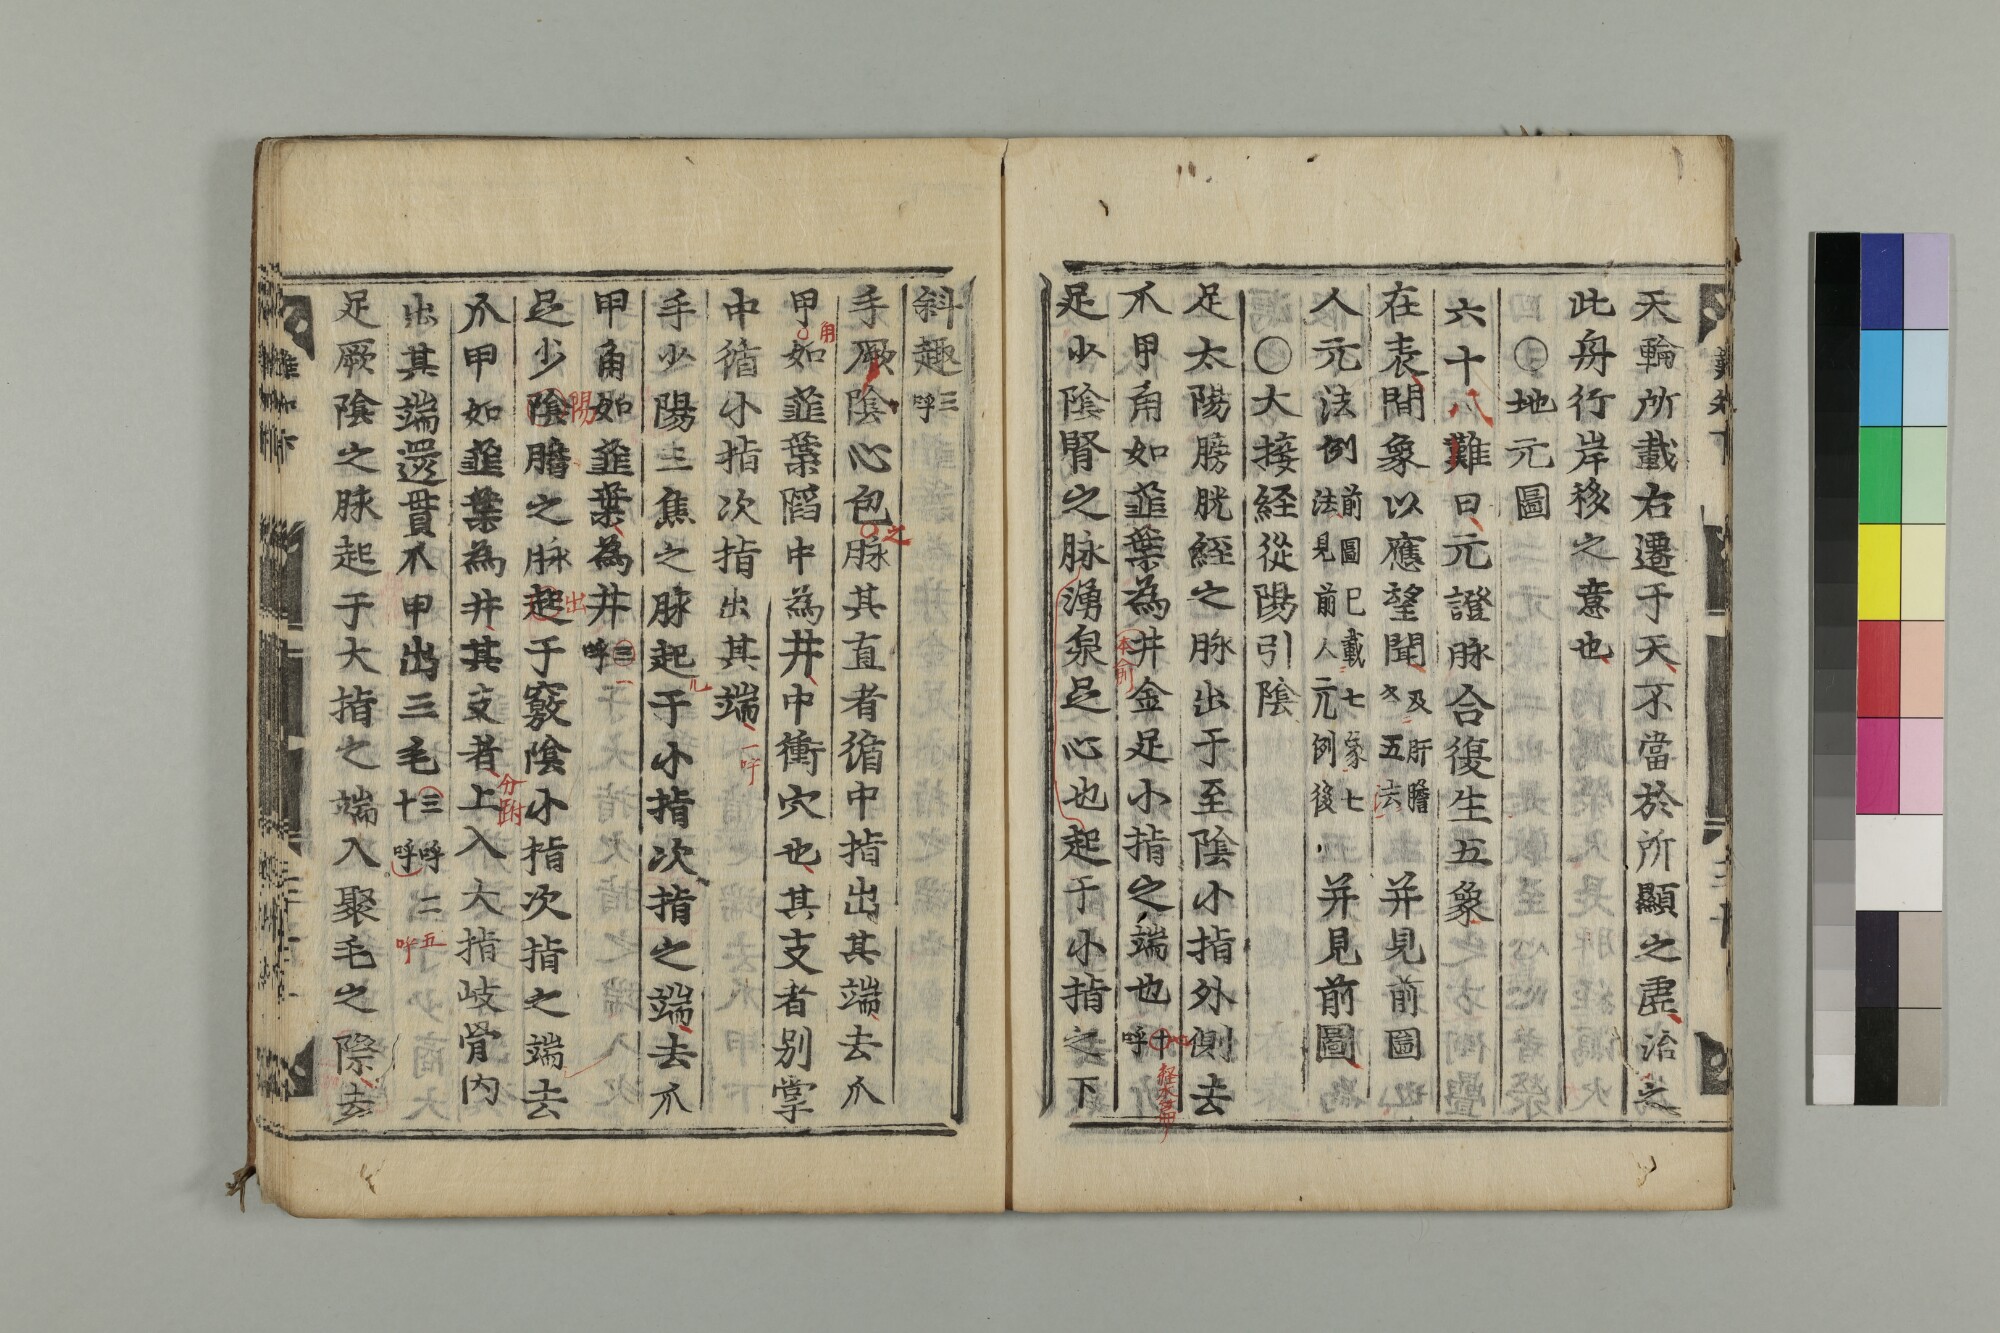 天輪所載右遷于天不當於所顯之虗治之
此舟行岸移之意也
○地元圖
六十八難曰元證脉合復生五象
在表間象以應望聞及肝膽五去并見前圖
人元法例前圖巳載七象七法見前人元例後并見前圖
○大接経從陽引陰
足太陽膀胱経之脉出于至陰小指外側去
爪甲角如韮葉為井金足小指之端也十呼
足少陰腎之脉湧泉足心也起于小指之下
斜趣三呼
手厥陰心包脉其直者循中指出其端去爪
甲如韮葉䧟中為井中衝穴也其支者别掌
中循小指次指出其端
手少陽三焦之脉起于小指次指之端去爪
甲角如韮葉為井三呼
足少陰膽之脉起于竅陰小指次指之端去
爪甲如韮葉為井其支者上入大指岐骨内
出其端還貫爪甲出三毛三呼十呼二
足厥陰之脉起于大指之端入聚毛之際去
角
之
一呼
陽
出
分跗
五呼
本俞